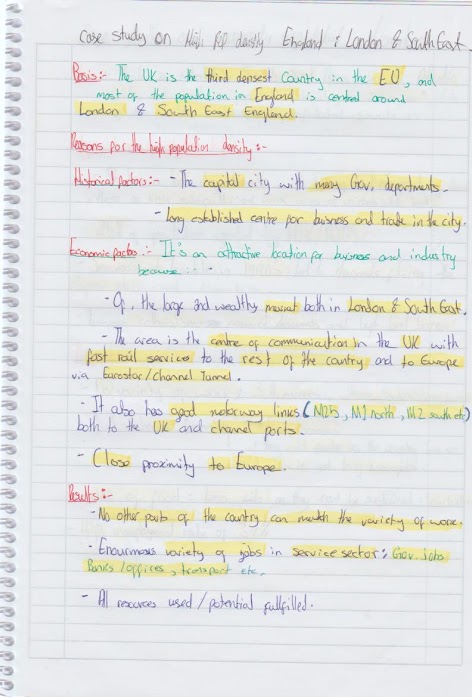 Case study on High pop density England : London & South East.
Basis:- The UK is the third densest Country in the EU, and
most of the population in England is centred around
London & South East England.
Reasons for the high population density:-
Historical factors:- - The capital city with many Gov. departments.
- Long established centre for business and trade in the city.
Economic factors:- It's an attractive location for business and industry
because:-
- Of, the large and wealthy market both in London & South East.
- The area is the centre of communication in the UK with
fast rail services to the rest of the country and to Europe
via Eurostar/Channel Tunnel.
- It also has good motorway links (M25, M1 north, M2 south etc)
both to the UK and channel ports.
- Close proximity to Europe.
Results:-
- No other parts of the country can match the variety of work.
- Enourmous variety of jobs in service sector: Gov. jobs
Banks/offices, transport etc.
- All resources used/potential fullfilled.